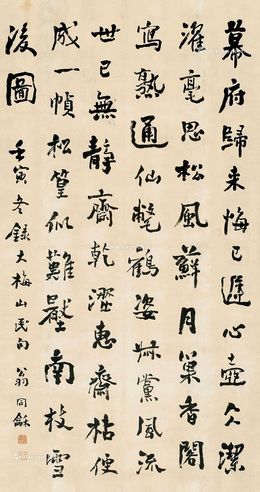 幕府歸来悔已遲心壺久潔
濯毫思松風蘇月巢香閣
寫熟逋仙氅鶴姿黨風流
世已無靜齋乾澀惠齋枯便
成一幀松篁似難壓南枝雪
後圖
壬寅冬錄大梅山民句 翁同龢